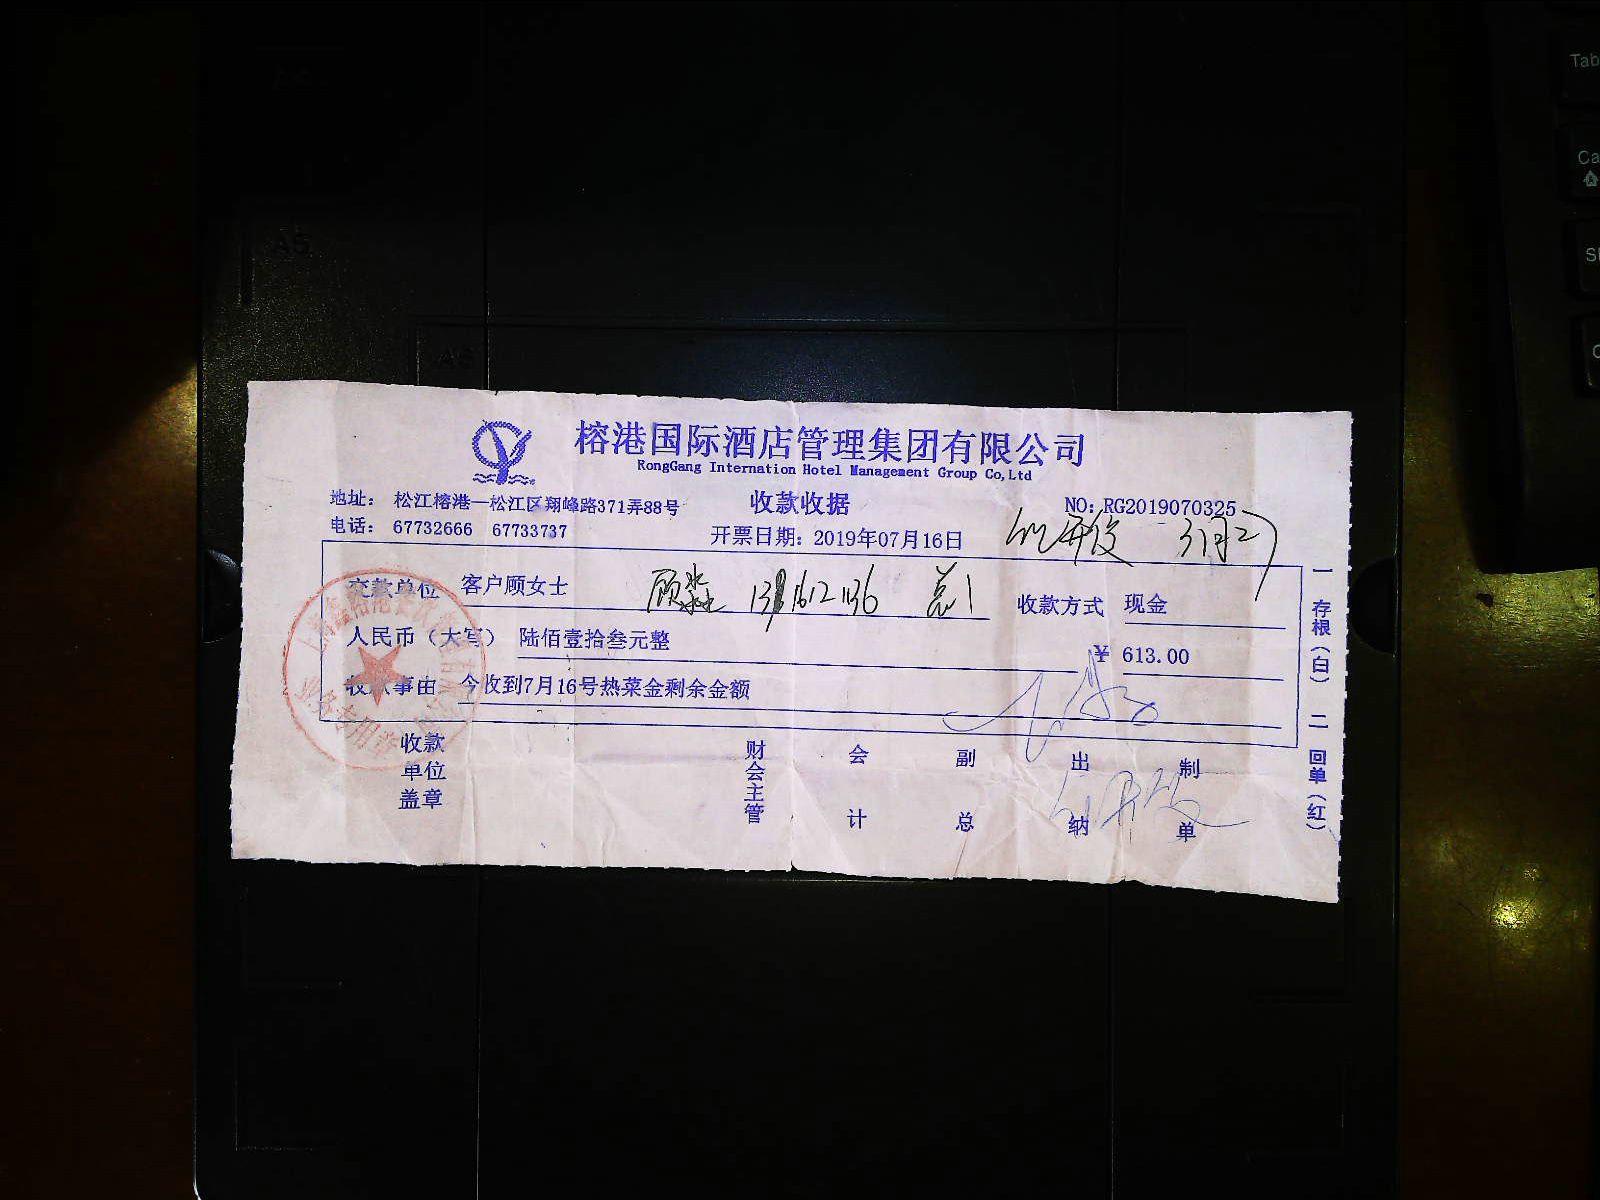 榕港国际酒店管理集团有限公司
RongGang Internation Hotel Management Group Co,Ltd
地址： 松江榕港—松江区翔峰路371弄88号
收款收据
NO: RG2019070325
电话： 67732666 67733737
开票日期： 2019年07月16日
交款单位 客户顾女士
收款方式 现金
人民币（大写） 陆佰壹拾叁元整
¥ 613.00
收款事由 今收到7月16号热菜金剩余金额
收款单位盖章
财会主管
会计
副总
出纳
制单
一存根（白） 二回单（红）
A5
A6
Tab